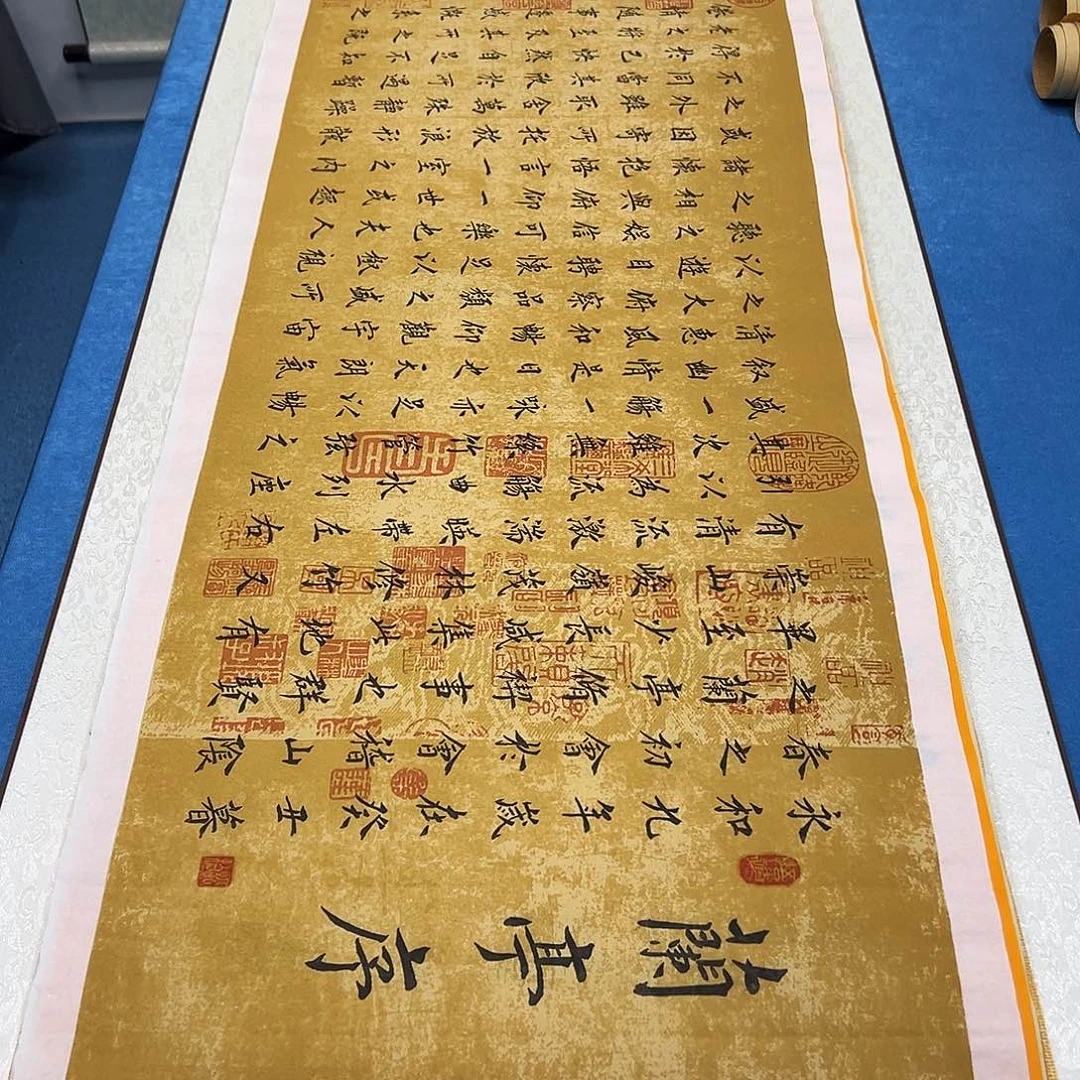 蘭亭序
永和九年歲在癸丑暮
春之初會於會稽山陰
之蘭亭脩禊事也群賢
畢至少長咸集此地有
崇山峻領茂林脩竹又
有清流激湍映帶左右
引以為流觴曲水列座
其次雖無絲竹管弦之
盛一觴一詠亦足以暢
叙幽情是日也天朗氣
清惠風和暢仰觀宇宙
之大俯察品類之盛所
以遊目騁懷足以極視
聽之娛信可樂也夫人
之相與俯仰一世或取
諸懷抱悟言一室之內
或因寄所託放浪形骸
之外雖取舍萬殊靜躁
不同當其欣於所遇暫
得於己快然自足不知
老之將至及其所之既
倦情隨事遷感慨係之